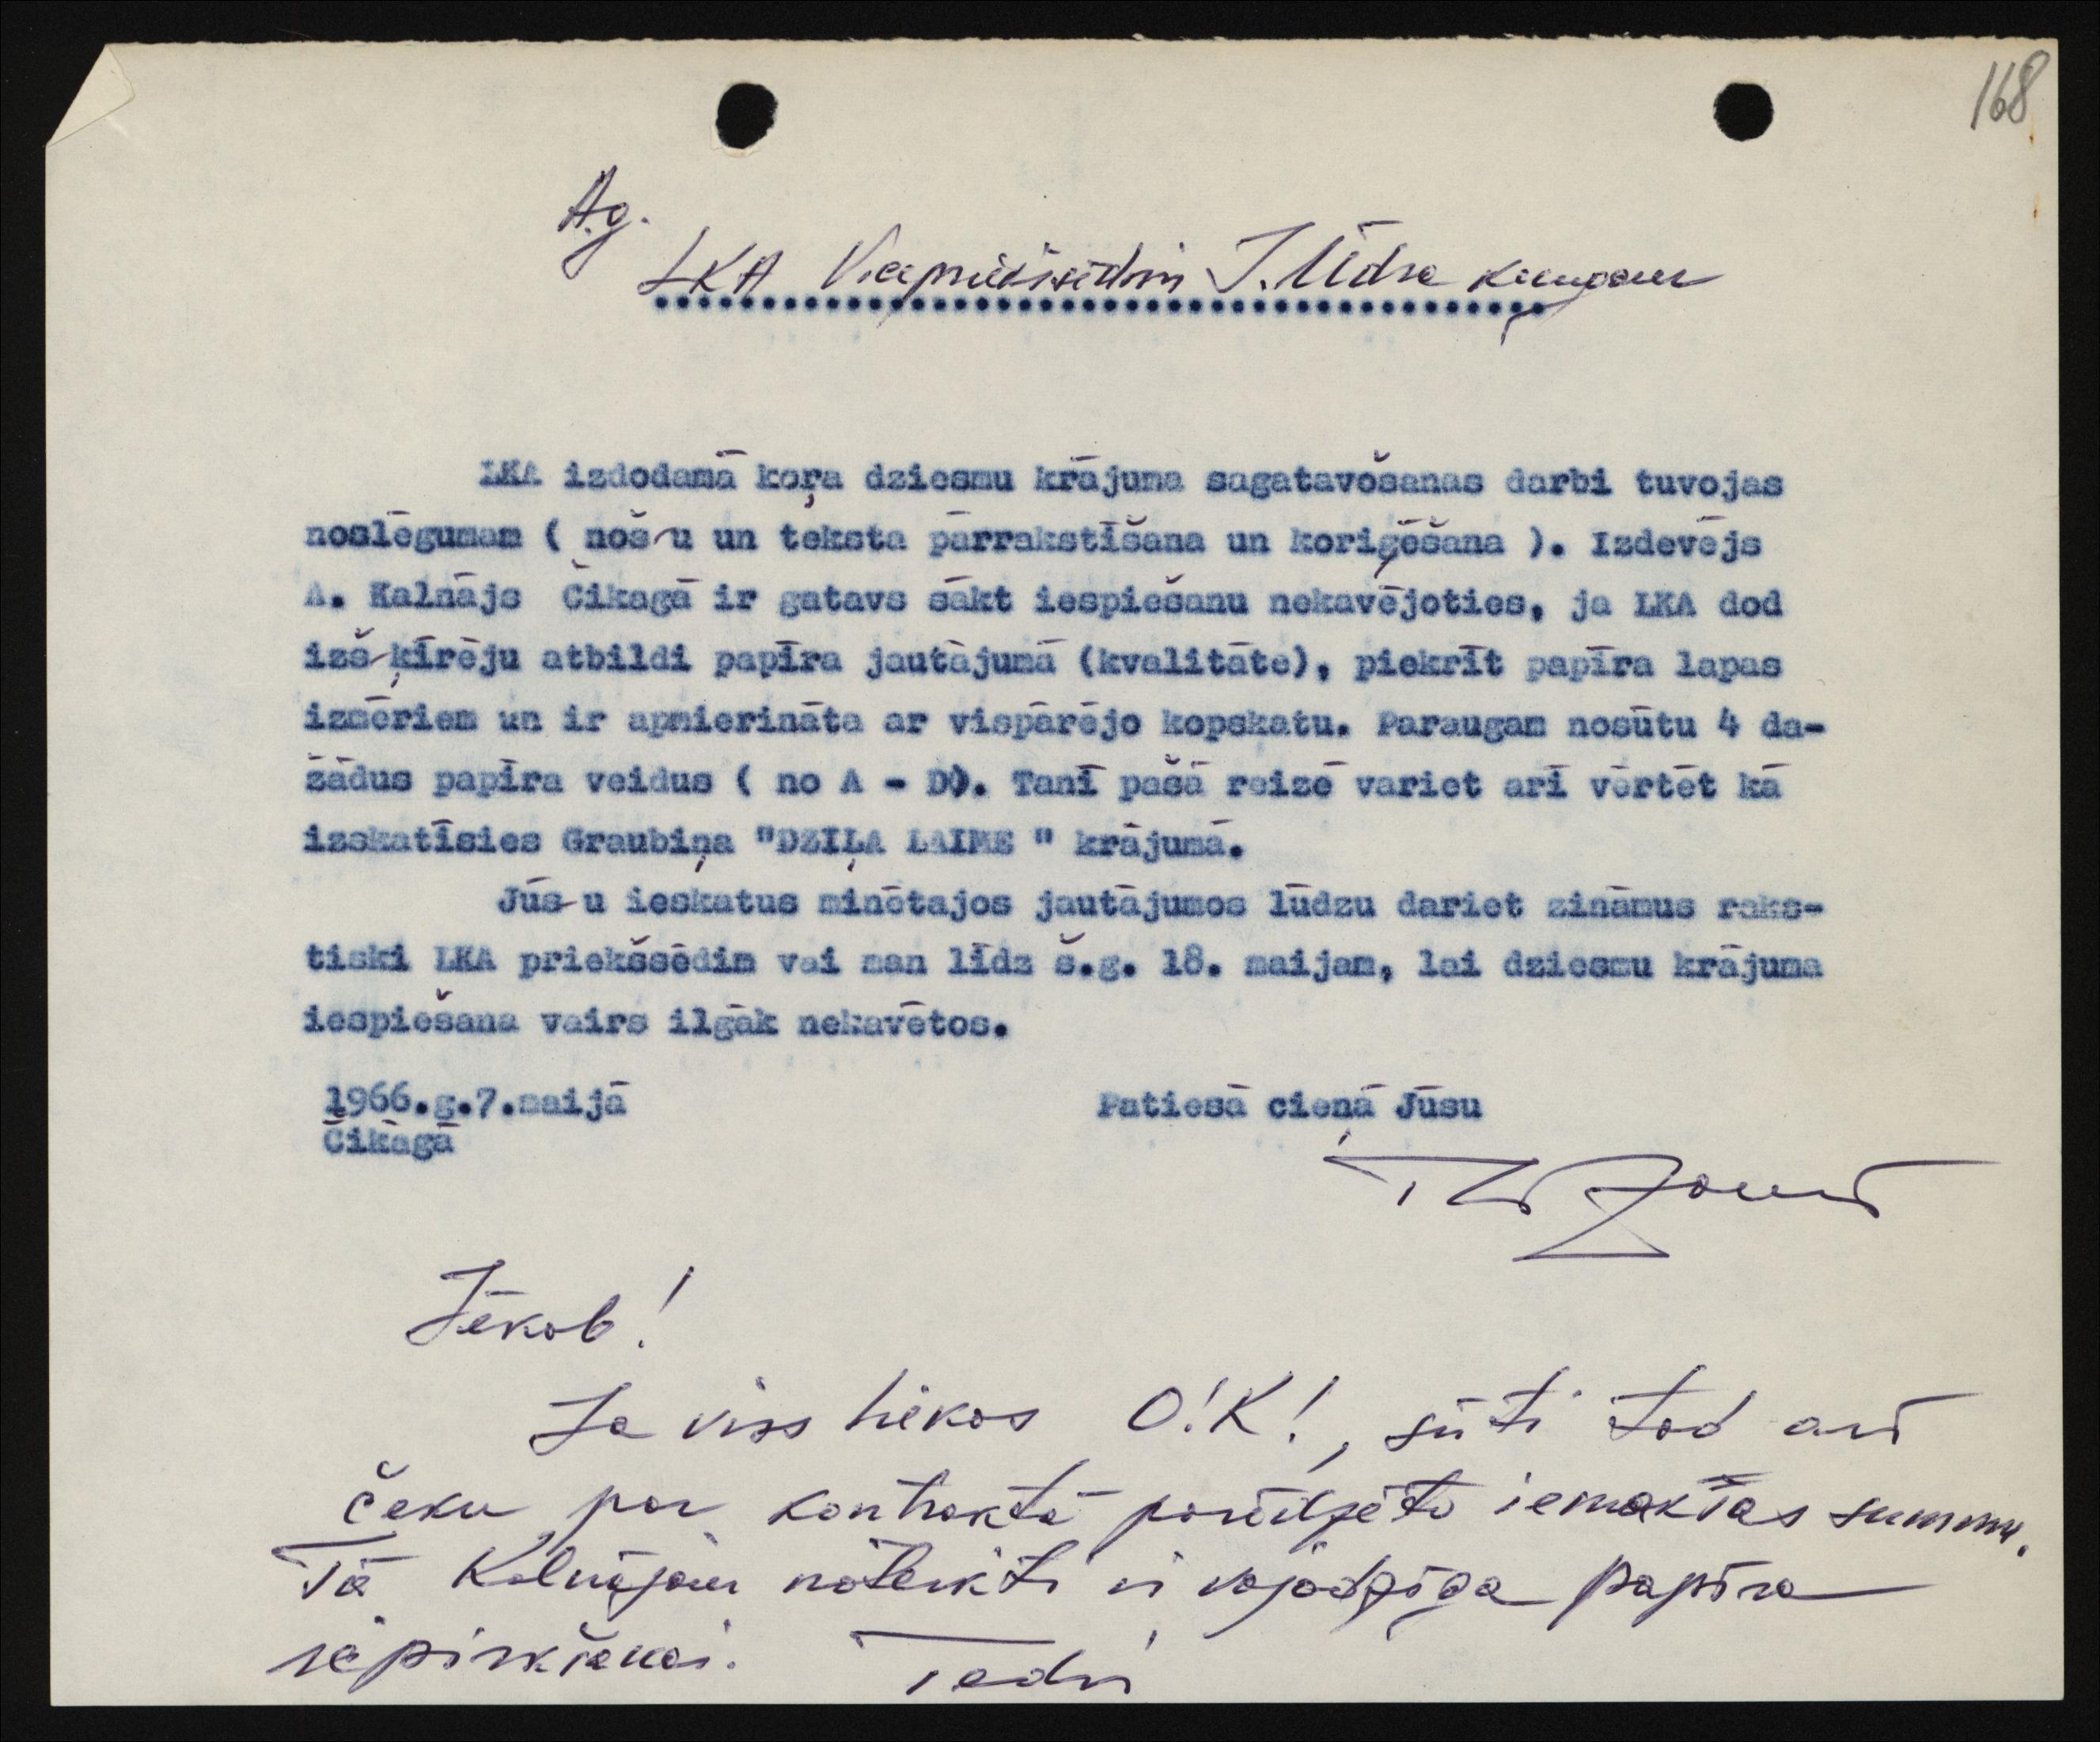 168
A.g.
LKA Vicepriekšsēdim J. Ūdra kungam
LKA izdodamā koŗa dziesmu krājuma sagatavošanas darbi tuvojas
noslēgumam ( nošu un teksta pārrakstīšana un koriģēšana ). Izdevējs
A. Kalnājs Čikagā ir gatavs sākt iespiešanu nekavējoties, ja LKA dod
izšķirēju atbildi papīra jautājumā (kvalitāte), piekrīt papīra lapas
izmēriem un ir apmierināta ar vispārējo kopskatu. Paraugam nosūtu 4 da-
žādus papīra veidus ( no A - D). Tanī pašā reizē variet arī vērtēt kā
izskatīsies Graubiņa "DZIĻA LAIME " krājumā.
Jūsu ieskatus minētajos jautājumos lūdzu dariet zināmus raks-
tiski LKA priekšsēdim vai man līdz š.g. 18. maijam, lai dziesmu krājuma
iespiešana vairs ilgāk nekavētos.
1966.g.7.maijā
Patiesā cieņā Jūsu
Čikāgā
Jēkab!
Ja viss liekas O!K!, sūti tad arī
čeku par kontraktā paredzēto iemaksas summu.
Tā Kalnājam noteikti ir vajadzīga papīra
iepirkšanai. Tedis